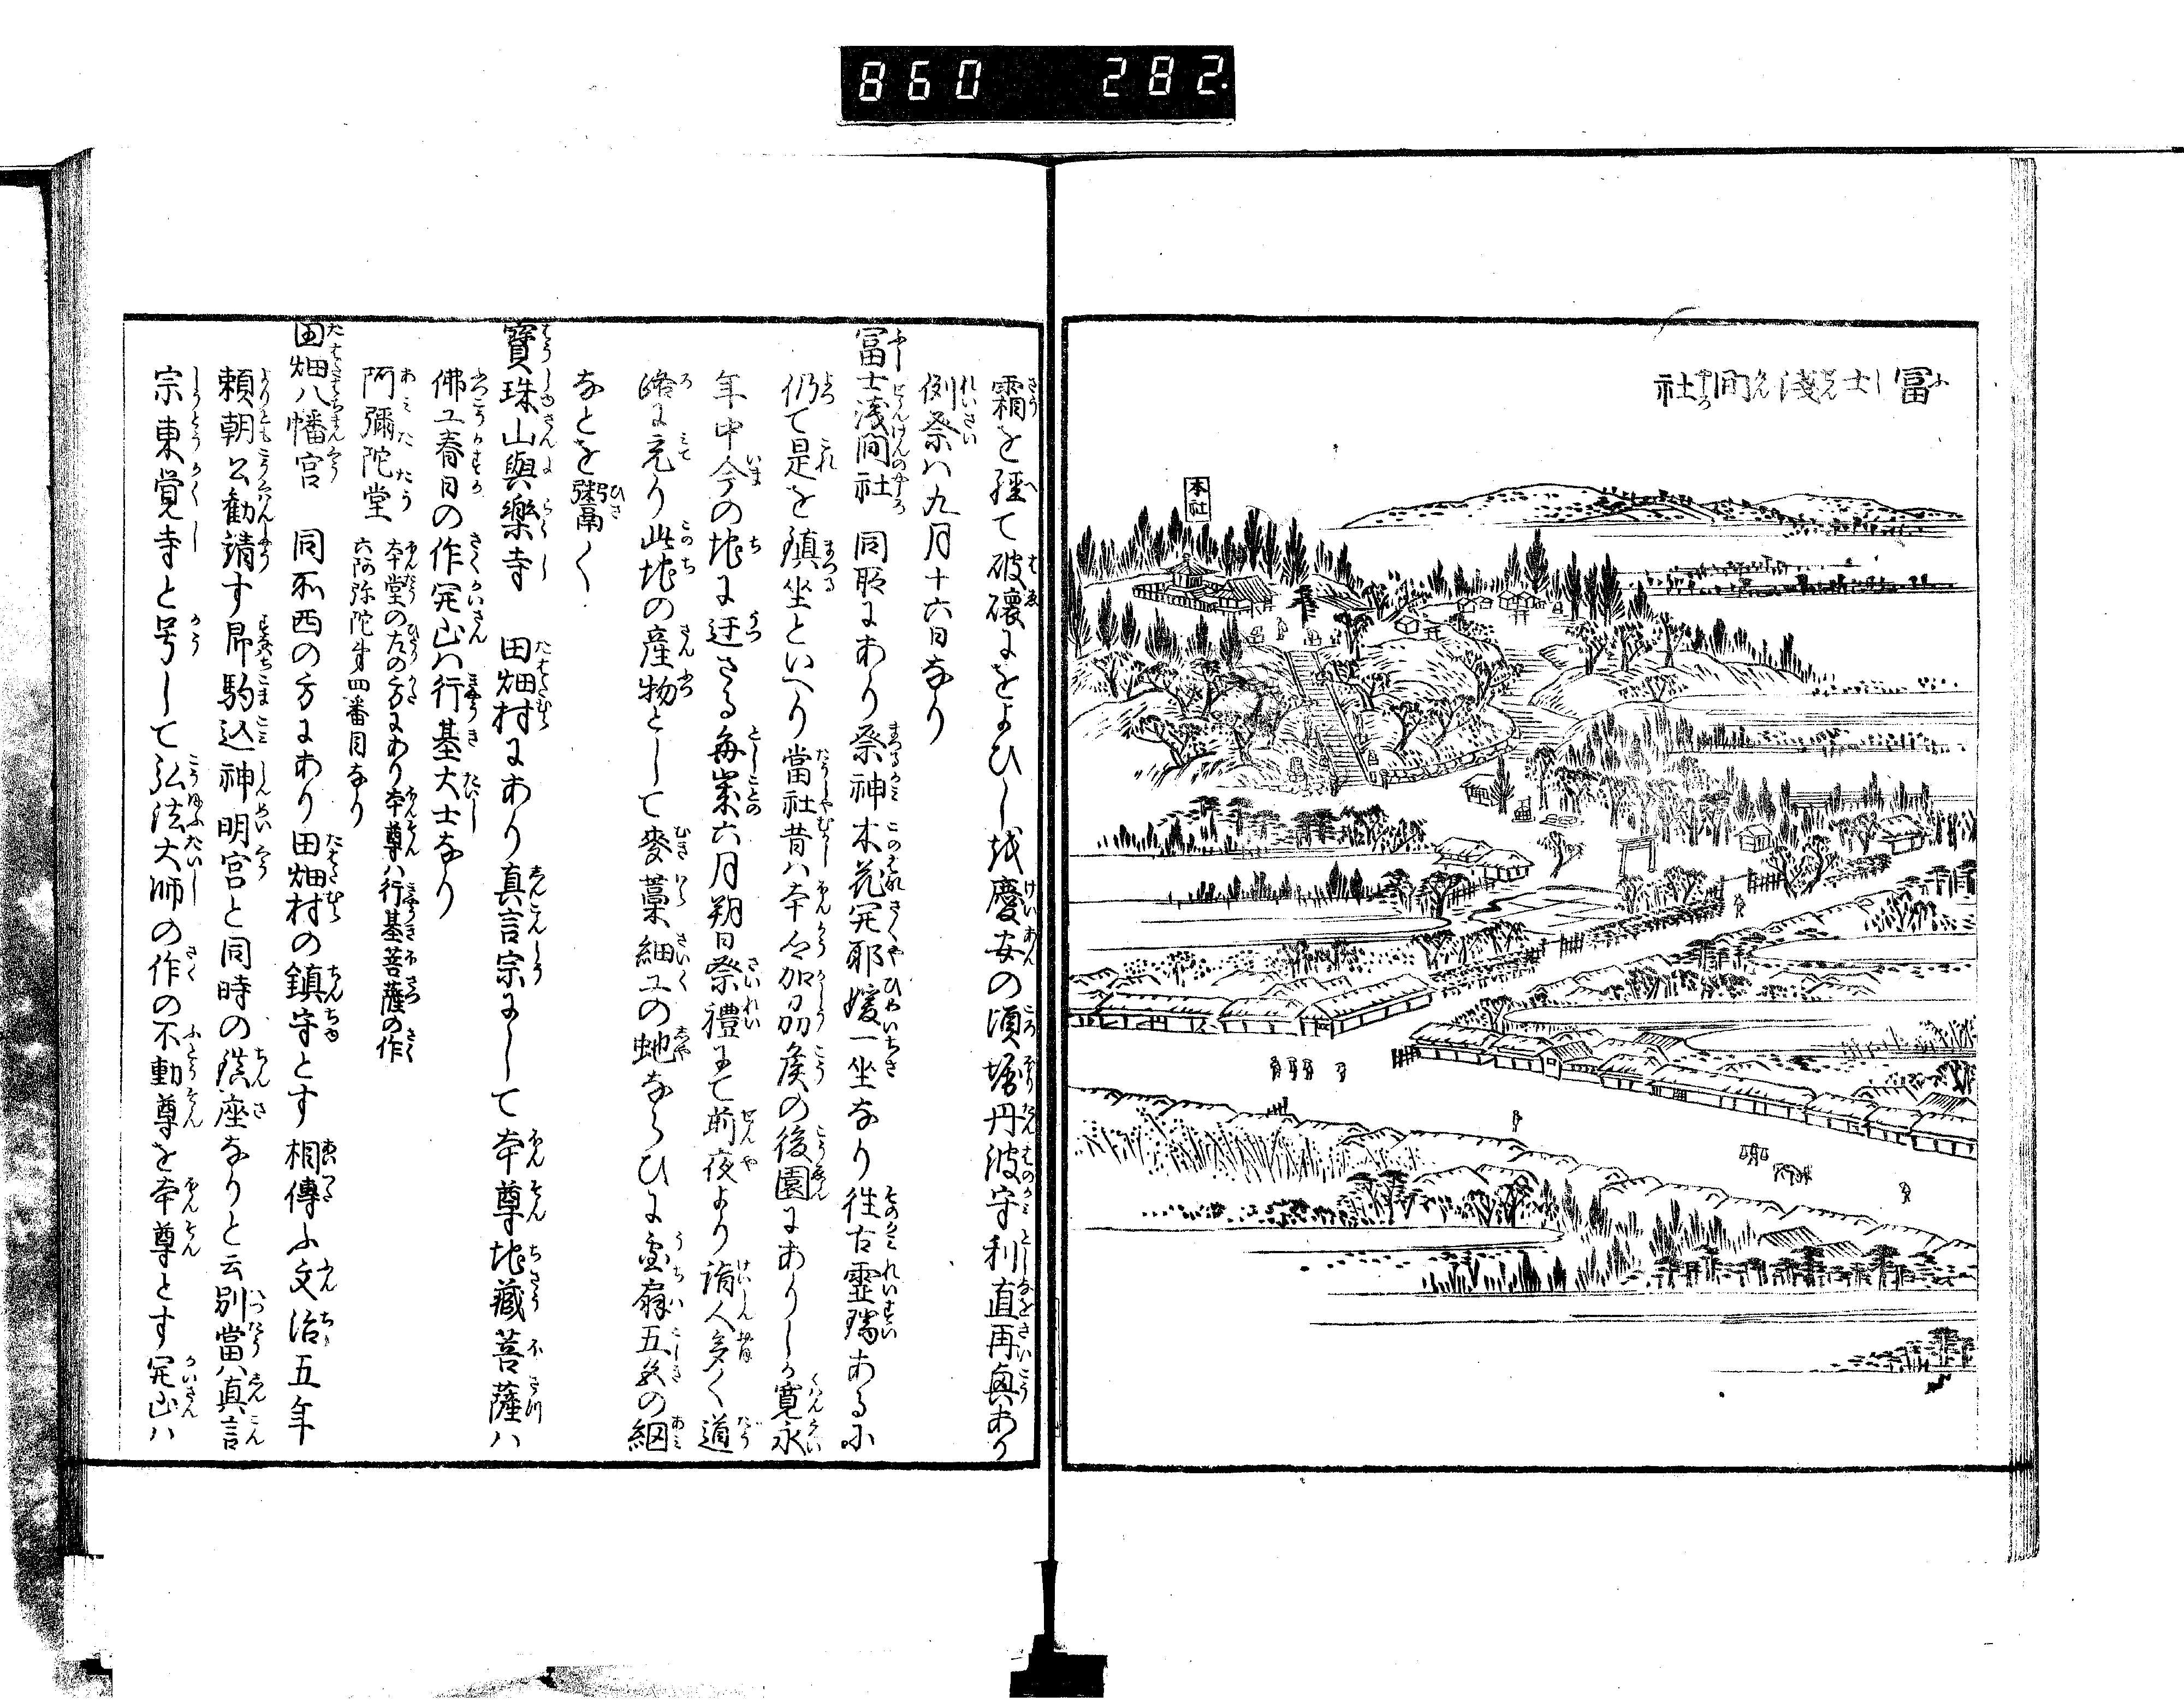 860 282
冨士淺間社
本社
霜を經て破壞におよひしを慶安の頃堀丹波守利直再興あり
例祭ハ九月十六日なり
冨士浅間社 同所にあり祭神木花開耶媛一坐なり往古靈瑞あるに
仍て是を鎮坐といへり當社昔ハ本郷加州侯の後園にありしか寛永
年中今の地に迁さる毎歳六月朔日祭禮にて前夜より詣人多く道
路に充り此地の産物として麥藁細工の蛇ならひに團扇五色の網
なとを鬻く
寶珠山與樂寺 田畑村にあり真言宗にして本尊地藏菩薩ハ
佛工春日の作開山ハ行基大士なり
阿彌陀堂 本堂の左の方にあり本尊ハ行基菩薩の作
六阿弥陀第四番目なり
田畑八幡宮 同所西の方にあり田畑村の鎮守とす相傳ふ文治五年
頼朝公勧請す即駒込神明宮と同時の鎮座なりと云別當ハ真言
宗東覚寺と号して弘法大師の作の不動尊を本尊とす開山ハ